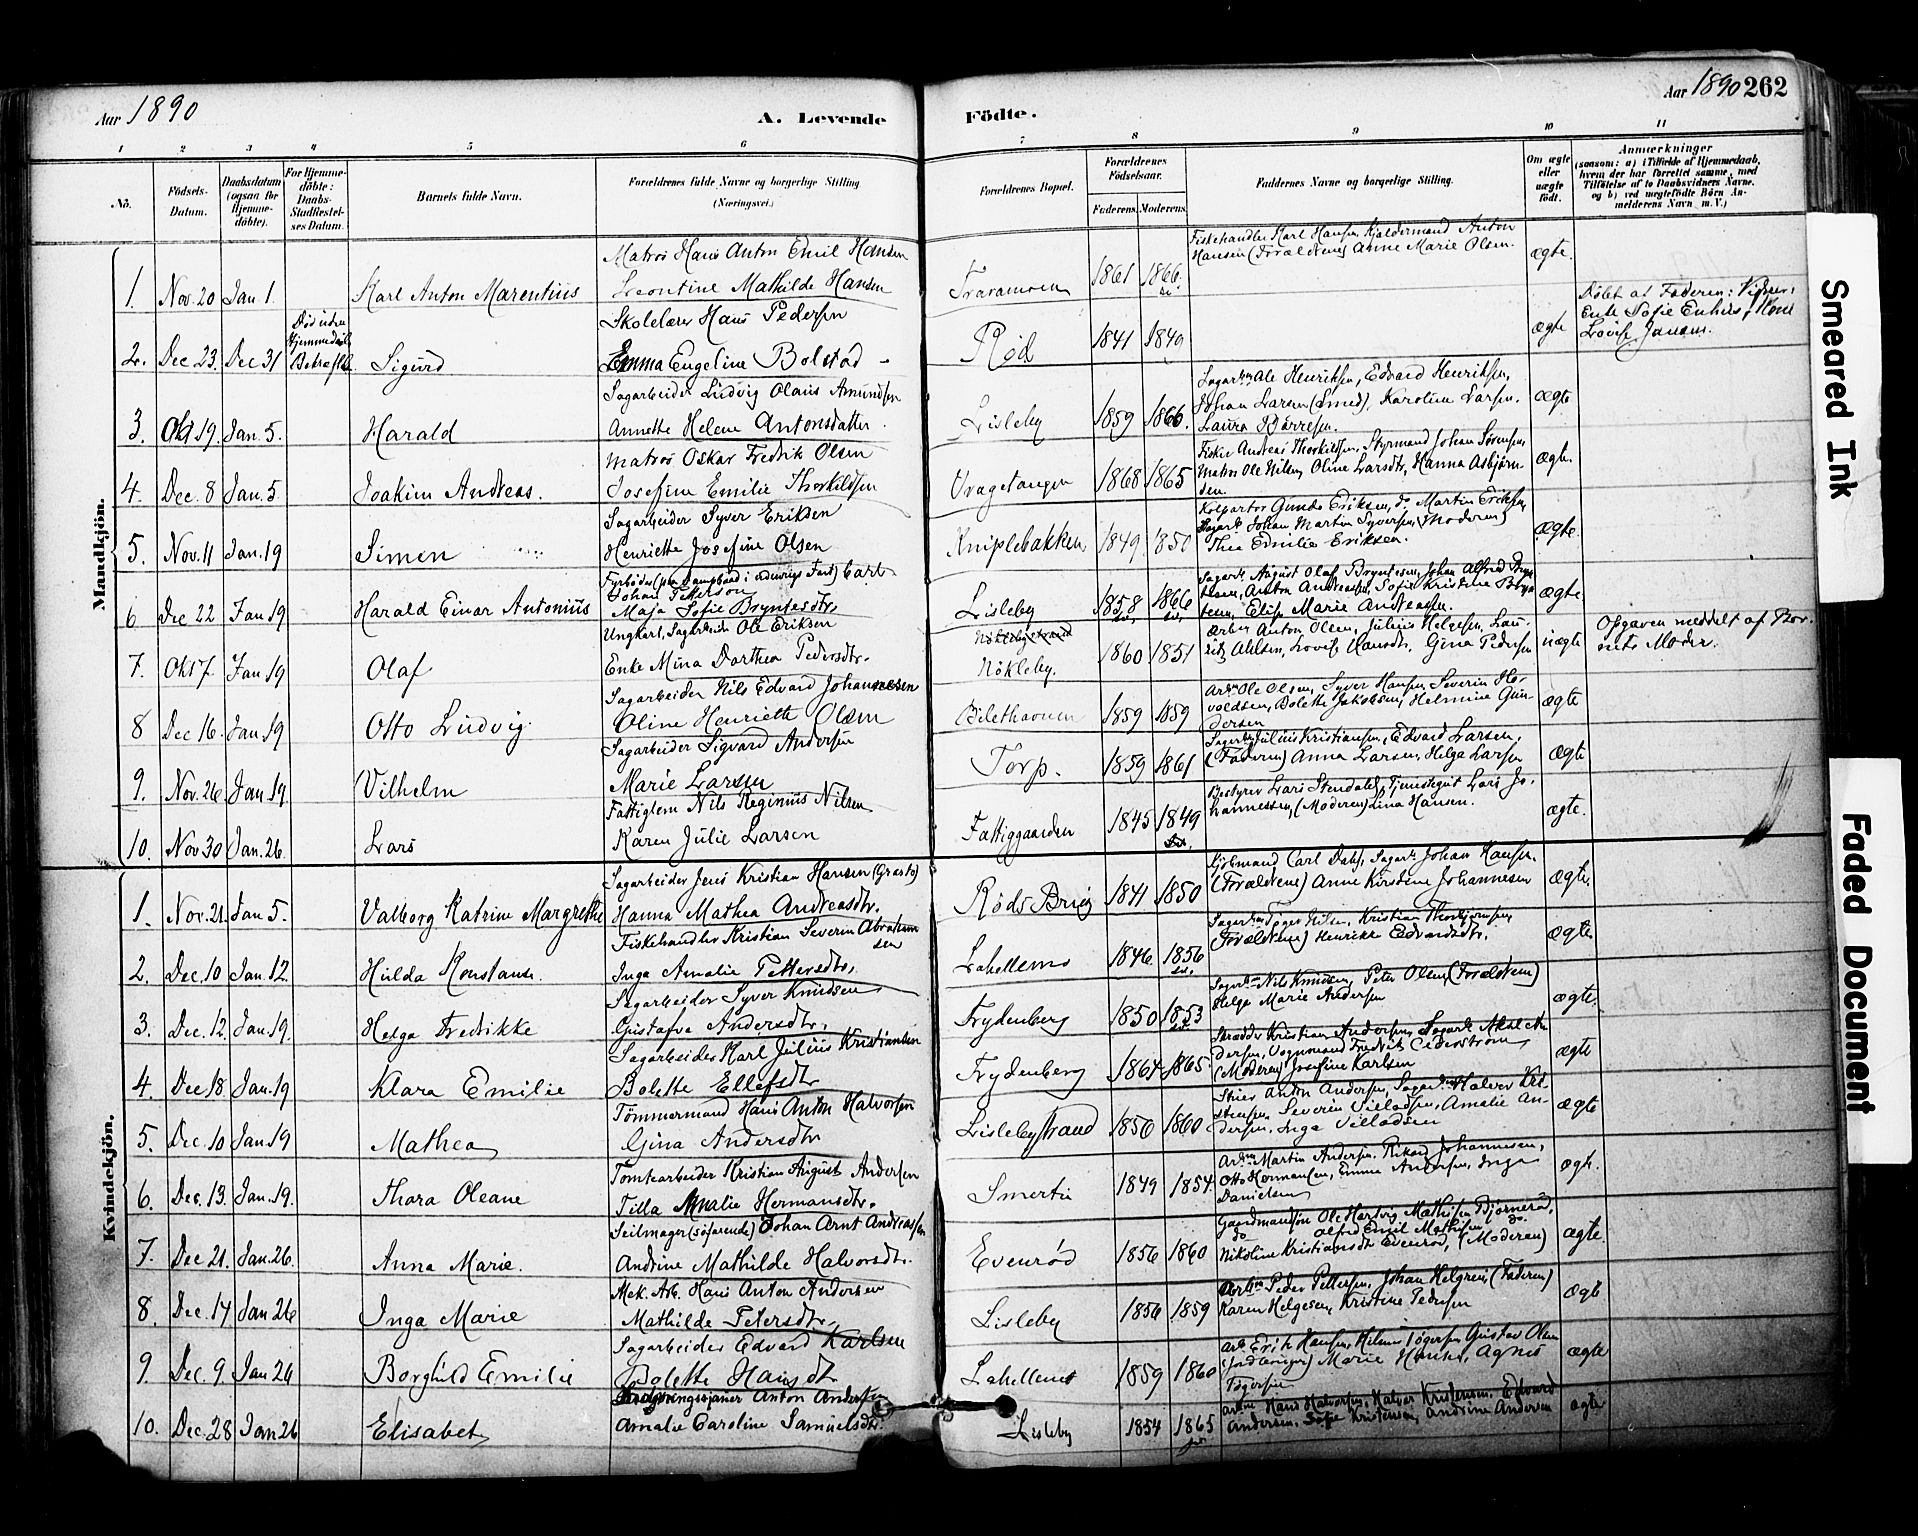 Aar 1890
A. Levende
Födte.
Aar 1890 262
1 2 3 4 5 6 7 8 9 10 11
No.
Födsels-Datum.
Daabsdatum (ogsaa for Hjemme-döbte).
For Hjemme-döbte: Daabs-Stadfæstel-ses Datum.
Barnets fulde Navn.
Forældrenes fulde Navne og borgerlige Stilling (Næringsvei.)
Forældrenes Bopæl.
Forældrenes Födselsaar.
Faderens. Moderens.
Faddernes Navne og borgerlige Stilling.
Om ægte eller uægte födt.
Anmærkninger
(saasom: a) i Tilfælde af Hjemmedaab,
hvem der har forrettet samme, med
Tilföielse af to Daabsvidners Navne,
og b) ved uægtefödte Börn An-
melderens Navn m. V.)
Mandkjön.
1. Nov. 20 Jan 1. Karl Anton Marentius
Matros Hans Anton Emil Hansen
Leontine Mathilde Hansen
1861 1866
Fiskehandler Karl Hansen, Anton
Hansen (Forældrene) Anne Marie Olsen.
ægte.
2. Dec 23. Dec 31 Sigurd
Skolelærer Hans Pedersen
Emma Engeline Bolstad
Rød 1841 1849
ægte
Døbt af Faderen:
Enke Sofie
Lovise Jansen.
3. Okt 19. Jan. 5. Harald
Sagarbeider Ludvig Olaus Amundsen
Annette Helene Antonsdatter.
Lisleby 1859 1866.
Sagarb. Ole Henriksen, Edvard Henriksen,
Johan Larsen (Smed), Karoline Larsen,
Laura Børresen.
ægte
4. Dec. 8 Jan. 5. Joakim Andreas.
Matros Oskar Fredrik Olsen
Josefine Emilie Thorkildsen
Vragetangen 1868 1865
Fisker Andreas Thorkildsen, Styrmand Johan Sørensen,
Matros Ole Nilsen, Oline Larsdtr, Hanna Asbjørn-
sen.
ægte.
5. Nov. 11 Jan. 19 Simen
Sagarbeider Syver Eriksen
Henriette Josefine Olsen
Kniplebakken 1849 1850
Kolportør Gunde Eriksen, do Martin Eriksen,
Sagarb. Johan Martin Syversen, (Moderen)
Thea Emilie Eriksen.
ægte.
6 Dec 22 Jan 19 Harald Einar Antonius
Fyrbøder (paa Dampbaad i udenrigs Fart) Carl
Johan Petterson
Maja Sofie Bryntesdtr.
Lisleby 1858 1866
Sagarb. August Olaf Bryntesen, Johan Alfred Bryn-
tesen, Anton Andreasen, Sofie Kristine Bryn-
tesen, Elise Marie Andreasen.
ægte
7. Okt 7 Jan 19 Olaf
Ungkarl, Sagarbeider Ole Eriksen
Enke Mina Dorthea Pedersdtr.
Nøkleby. 1860 1851
Arbm Anton Olsen, Julius Helgesen, Lau-
ritz Ahlsen, Lovise Hansdtr, Gina Pedersen
uægte
Opgaven meddelt af Bar-
nets Moder.
8 Dec 16. Jan 19 Otto Ludvig.
Sagarbeider Nils Edvard Johannesen
Oline Henriette Olsen
1859 1859
Arbm Ole Olsen, Syver Hansen, Severin Hor-
voldsen, Bolette Jakobsen, Helmine Gun-
dersen
ægte
9. Nov. 26 Jan 19. Vilhelm
Sagarbeider Sigvard Andersen
Marie Larsen
Torp. 1859 1861
Sagarb. Julius Kristiansen, Edvard Larsen,
(Faderen) Anna Larsen, Helga Larsen
ægte
10. Nov 30 Jan. 26. Lars
Fattiglem Nils Reginius Nilsen
Karen Julie Larsen
Fattiggaarden 1845 1849
Bestyrer Lars Stendahl, Tjenstegut Lars Jo-
hannessen, (Moderen) Lina Hansen.
ægte.
Kvindekjön.
1. Nov. 21. Jan 5. Valborg Katrine Margrethe
Sagarbeider Jens Kristian Hansen
Hanna Mathea Andreasdtr.
Røds Brug 1841 1850
Carl Dahl, Sagarb. Johan Hansen.
(Forældrene) Anne Kirstine Johannesen
ægte.
2. Dec. 10 Jan. 12. Hulda Konstanse.
Fiskehandler Kristian Severin Abraham-
sen
Inga Amalie Pettersdtr.
Lahellemo 1846 1856
Nilsen, Kristian Thorbjørnsen,
(Forældrene) Henrikke Edvardsdtr.
ægte
3. Dec. 12. Jan. 19. Helga Fredrikke
Sagarbeider Syver Knudsen
Gustafva Andersdtr.
Frydenberg 1850 1853
Sagarbm Nils Knudsen, Peter Olsen, (Forældrene)
Helga Marie Andersen
ægte.
4. Dec 18. Jan. 19 Klara Emilie
Sagarbeider Karl Julius Kristiansen
Bolette Ellefsdtr
Frydenberg 1864 1865
Skrædder Kristian Andersen, Sagarb. Aksel An-
dersen, Vognmand Fredrik Cederstrøm,
(Moderen) Josefine Karlsen
ægte
5. Dec. 10 Jan. 19 Mathea
Tömmermand Hans Anton Halvorsen
Gina Andersdtr
Lislebystrand 1856 1860
Anton Andersen, Sagarbm Halvor Kri-
stensen, Severin Villadsen, Amalie An-
dersen, Inga Villadsen
ægte
6 Dec. 13. Jan. 19. Thora Oleane
Tomtearbeider Kristian August Andersen
Tilla Amalie Hermansdtr.
Smertu 1849 1854
Arbm Martin Andersen, Rikard Johannesen,
Otto Hermansen, Emma Andersen, Inga
Danielsen
ægte.
7. Dec 21. Jan. 26. Anna Marie.
Seilmager (søfarende) Johan Arnt Andreassen
Andrine Mathilde Halvorsdtr.
Evenrød 1856 1860
Gaardmandssøn Ole Hartvig Mathisen Bjørnerød,
do Alfred Emil Mathisen, do
Nikoline Kristiansdtr Evenrød, (Moderen)
ægte.
8. Dec. 17 Jan 26 Inga Marie
Mek. Arb. Hans Anton Andersen
Mathilde Petersdtr.
Lisleby 1856 1859
Arbm Peder Pettersen, Johan Helgesen, (Faderen)
Karen Helgesen, Kristine Pedersen
ægte
9. Dec. 9 Jan 26 Borghild Emilie
Sagarbeider Edvard Karlsen
Bolette Hansdtr
Lahellemo 1859 1860
Arb. Erik Hansen, Gustav Olsen
Marie Hansen, Agnes
ægte
10. Dec. 28 Jan 26 Elisabet
Anton Andersen
Amalie Caroline Samuelsdtr.
Lisleby 1854 1865
Arbm Hans Halvorsen, Halvor Kristensen, Edvard
Andersen, Sofie Kristensen, Andrine Andersen
ægte
Smeared Ink
Faded Document